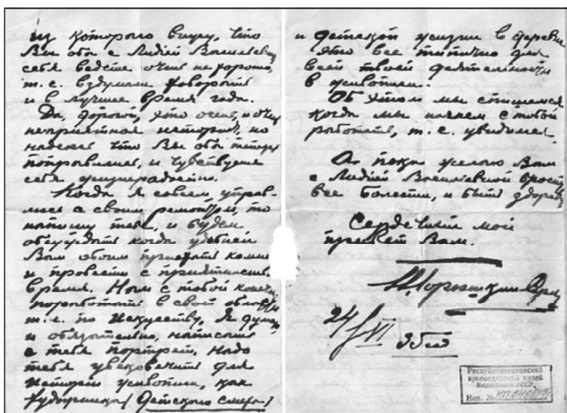 из которого вижу, что
Вы оба с Лидией Васильевной
себя ведете очень не хорошо,
т.е. вздумали хворать
и в лучшее время года.
Да, дорогой, это очень, и очень
неприятная история, но
надеюсь что Вы оба теперь
поправились, и чувствуете
себя
Когда я совсем управ-
люсь с своим ремонтом, то
напишу тебе, и будем
обсуждать когда удобней
Вам обоим приехать к нам
и провести с приятностью
время. Нам с тобой конечно
поработать в свой области
т.е. по Искусству. Я думаю
и обязательно, написать
с тебя портрет. Надо
тебя увековечить для
Истории живописи, как
художника Детского мира
и детской жизни в деревне
это все типично для
всей твоей деятельности
в живописи.
Об этом мы спишемся
когда мы начнем с тобой
работать, т.е. увидимся.
А пока желаю Вам
с Лидией Васильевной бросить
все болести, и быть здоровы
Сердечный мой
привет Вам.
24/VI
35 год
Республиканский
краеведческий музей
Инв. №